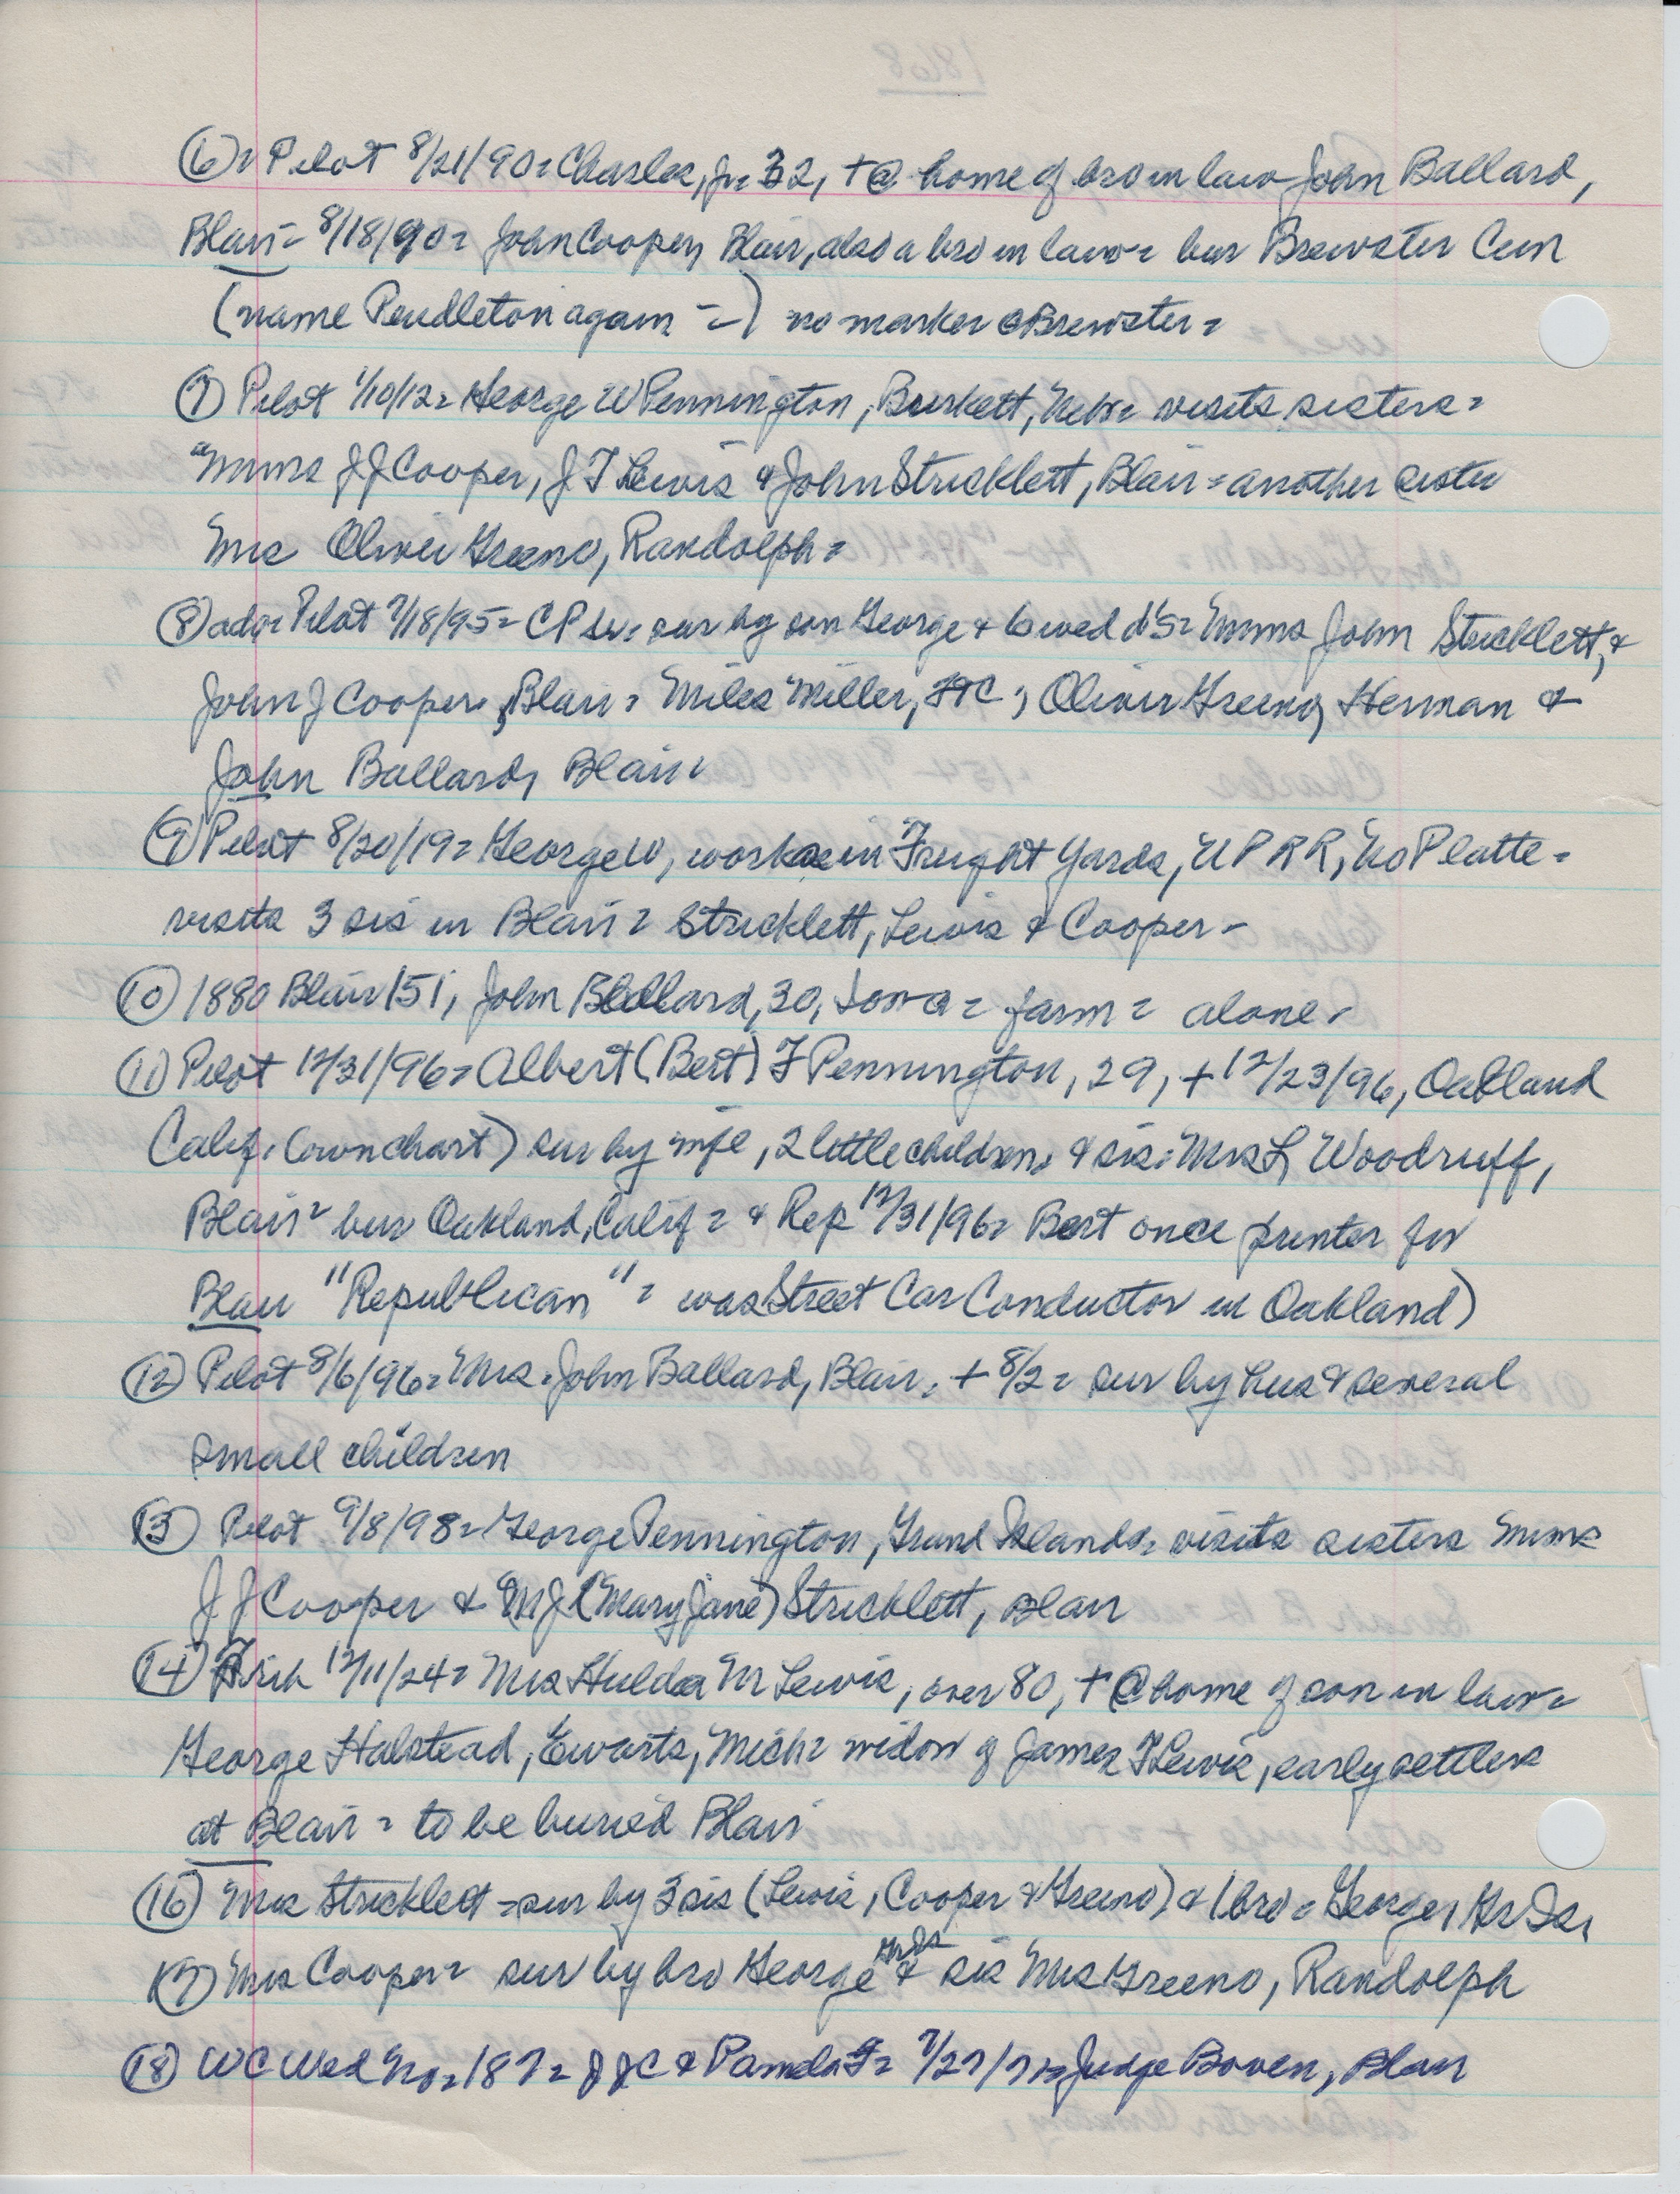 (6) = Pilot 8/21/90 = Charles, Jr = 32, + @ home of bro in law John Ballard,
Blair = 8/18/90 = John Cooper, Blair, also a bro in law = bur Brewster Cem
(name Pendleton again =) no marker @ Brewster =
(7) Pilot 1/10/12 = George W Pennington, Burkett, Nebr = visits sisters =
Mmes J J Cooper, J T Lewis & John Stricklett, Blair = another sister
Mrs Oliver Greeno, Randolph =
(8) ado = Pilot 7/18/95 = CP Sr = sur by son George & 6 wed d's = Mmes John Stricklett, &
John J Cooper, Blair = Miles Miller, FtC; Oliver Greeno, Herman &
John Ballard, Blair =
(9) Pilot 8/20/19 = George W, works in Freight Yards, U P R R, No Platte =
visits 3 sis in Blair = Stricklett, Lewis & Cooper -
(10) 1880 Blair 151, John Ballard, 30, Iowa = farm = alone -
(11) Pilot 12/31/96 = Albert (Bert) F Pennington, 29, + 12/23/96, Oakland
Calif. (own chart) sur by wife, 2 little children, & sis: Mrs L Woodruff,
Blair = bur Oakland, Calif = & Rep 12/31/96 = Bert once printer for
Blair "Republican" = was Street Car Conductor in Oakland)
(12) Pilot 8/6/96 = Mrs. John Ballard, Blair, + 8/2 = sur by hus & several
small children
(13) Pilot 9/8/98 = George Pennington, Grand Island = visits sisters Mmes
J J Cooper & M J (Mary Jane) Stricklett, Blair
(14) 12/11/24 = Mrs Hulda M Lewis, over 80, + @ home of son in law =
George Halstead, Ewarts, Mich = widow of James T Lewis, early settlers
at Blair = to be buried Blair
(16) Mrs Stricklett = sur by 3 sis (Lewis, Cooper & Greeno) & 1 bro = George, Gr Is,
(17) Mrs Cooper = sur by bro George Gr Is & sis Mrs Greeno, Randolph
(18) WC Wed No = 187 = J J C & Pamela F = 7/27/7 = Judge Bowen, Blair